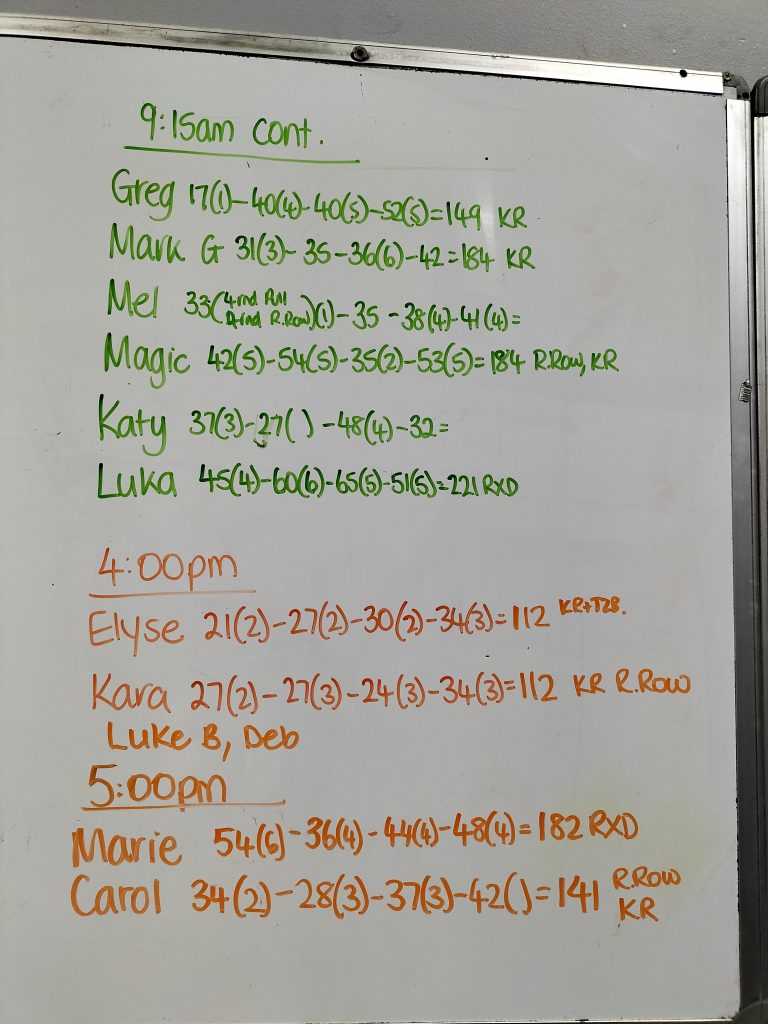 9:15am cont.
Greg 17(1)-40(4)-40(5)-52(5)=149 KR
Mark G 31(3)-35-36(6)-42=184 KR
Mel 33(4 rnd Pull
4 rnd R.Row)(1)-35-38(4)-41(4)=
Magic 42(5)-54(5)-35(2)-53(5)=184 R.Row, KR
Katy 37(3)-27( )-48(4)-32=
Luka 45(4)-60(6)-65(5)-51(5)=221 RXD
4:00pm
Elyse 21(2)-27(2)-30(2)-34(3)=112 KR+T2B.
Kara 27(2)-27(3)-24(3)-34(3)=112 KR R.Row
Luke B, Deb
5:00pm
Marie 54(6)-36(4)-44(4)-48(4)=182 RXD
Carol 34(2)-28(3)-37(3)-42()=141 R.Row
KR